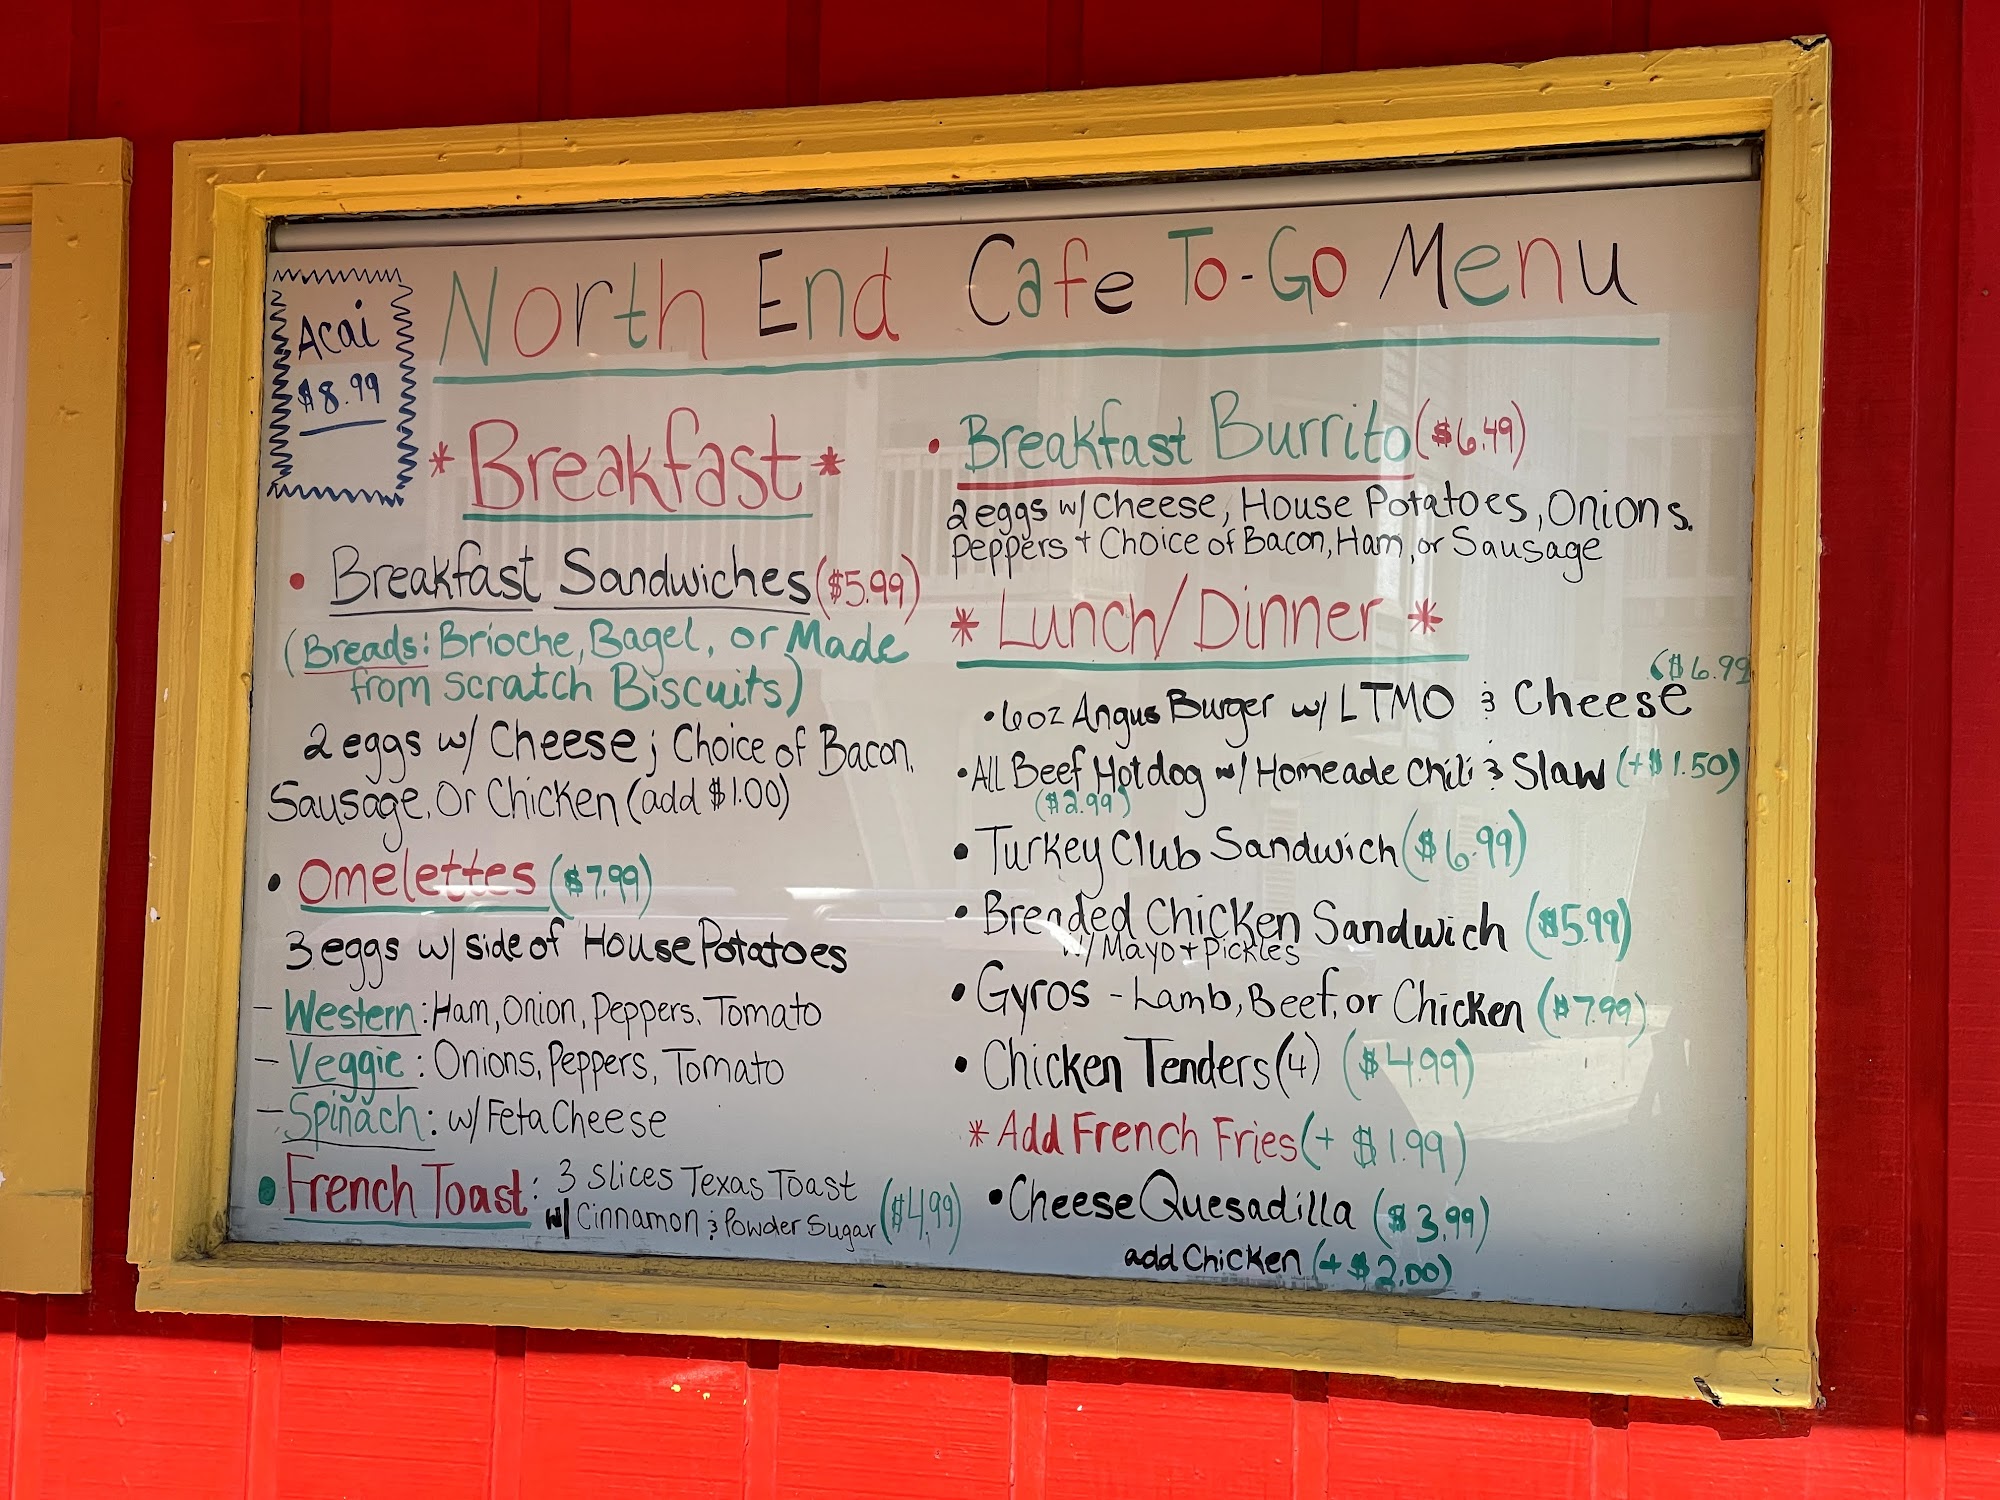 North End Cafe To-Go Menu
Acai
$8.99
*Breakfast*
• Breakfast Sandwiches ($5.99)
(Breads: Brioche, Bagel, or Made
from scratch Biscuits)
2 eggs w/ Cheese; Choice of Bacon,
Sausage, Or Chicken (add $1.00)
• Omelettes ($7.99)
3 eggs w/ side of House Potatoes
- Western: Ham, Onion, Peppers, Tomato
- Veggie: Onions, Peppers, Tomato
- Spinach: w/ Feta Cheese
• French Toast: 3 Slices Texas Toast
w/ Cinnamon & Powder Sugar ($4.99)
• Breakfast Burrito ($6.49)
2 eggs w/ Cheese, House Potatoes, Onions,
Peppers + Choice of Bacon, Ham, or Sausage
* Lunch/Dinner *
($6.99
• 6oz Angus Burger w/ LTMO & Cheese
• All Beef Hotdog w/ Homeade Chili & Slaw (+$1.50)
($2.99)
• Turkey Club Sandwich ($6.99)
• Breaded Chicken Sandwich ($5.99)
w/ Mayo + Pickles
• Gyros - Lamb, Beef, or Chicken ($7.99)
• Chicken Tenders (4) ($4.99)
* Add French Fries (+ $1.99)
• Cheese Quesadilla ($3.99)
add Chicken (+$2.00)